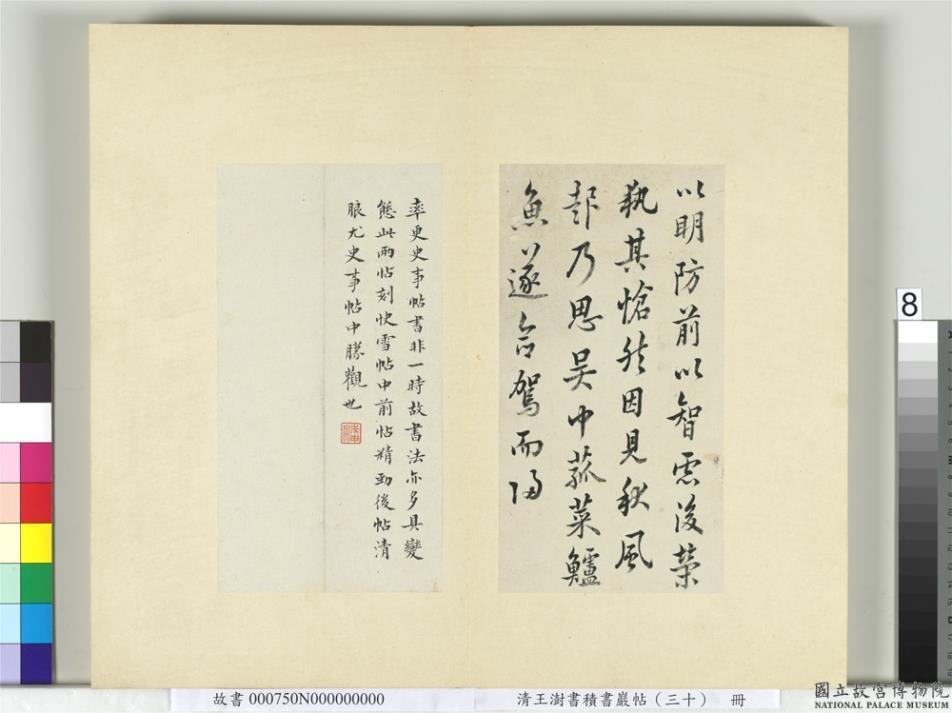 以明防前以智慮後榮
執其愴然因見秋風
起乃思吴中菰菜鱸
魚遂命駕而歸
率更史事帖書非一時故書法亦多具變
態此兩帖刻快雪帖中前帖精勁後帖清
朗尤史事帖中勝觀也
8
故書 000750N000000000
清王澍書積書巖帖（三十） 冊
國立故宮博物院
NATIONAL PALACE MUSEUM